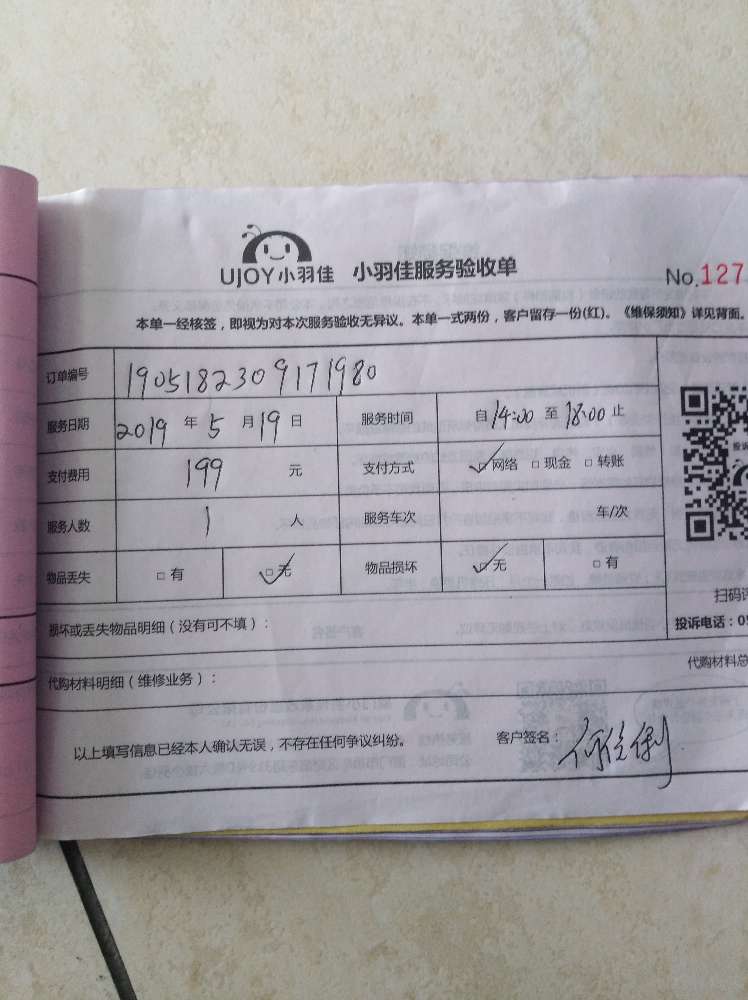 UJOY小羽佳 小羽佳服务验收单
No.127
本单一经核签，即视为对本次服务验收无异议。本单一式两份，客户留存一份(红)。《维保须知》详见背面。
订单编号 1905182309171980
服务日期 2019 年 5 月 19 日 服务时间 自 14:00 至 18:00 止
支付费用 199 元 支付方式 ☑网络 □现金 □转账
服务人数 1 人 服务车次 车/次
物品丢失 □有 ☑无 物品损坏 ☑无 □有
扫码
损坏或丢失物品明细（没有可不填）：
投诉电话：05
代购材料明细（维修业务）：
代购材料总
以上填写信息已经本人确认无误，不存在任何争议纠纷。 客户签名：